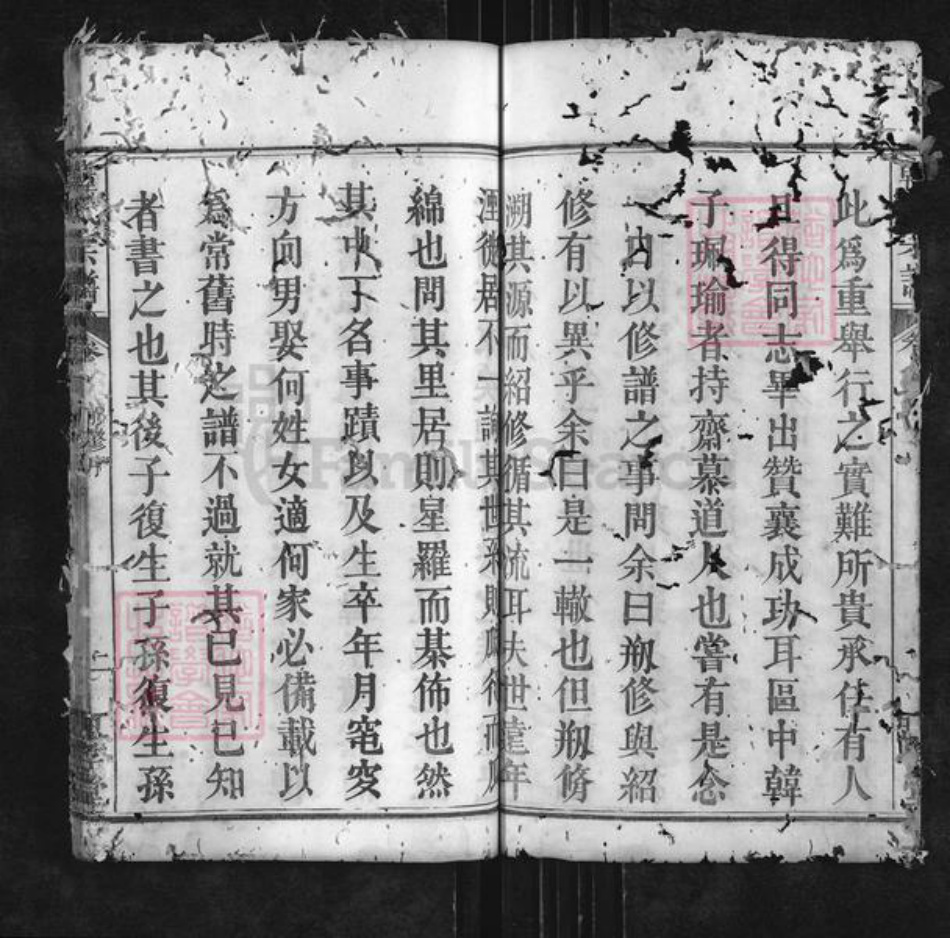 此爲重舉行之實難所貴承任有人
且得同志畢出贊襄成功耳區中韓
子珮瑜者持齋慕道人也嘗有是念
一日以修譜之事問余曰剏修與紹
修有以異乎余曰是一轍也但剏脩
溯其源而紹修循其流耳夫世遠年
湮徙居不一詢其世系則
綿也問其里居則星羅而棊佈也然
其中名事蹟以及生卒年月窀穸
方向男娶何姓女適何家必備載以
爲常舊時之譜不過就其已見已知
者書之也其後子復生子孫復生孫
宗譜
FamilySearch